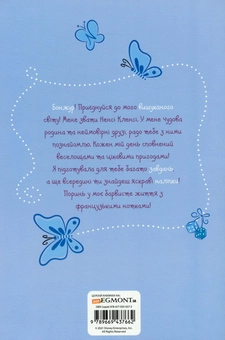 Бонжур! Приєднуйся до мого вишуканого
світу! Мене звати Ненсі Кленсі. У мене чудова
родина та неймовірні друзі, радо тебе з ними
познайомлю. Кожен мій день сповнений
веселощами та цікавими пригодами!
Я підготувала для тебе багато завдань,
а ще всередині ти знайдеш яскраві наліпки!
Поринь у моє барвисте життя з
французькими нотками!
EGMONT
9789669437662